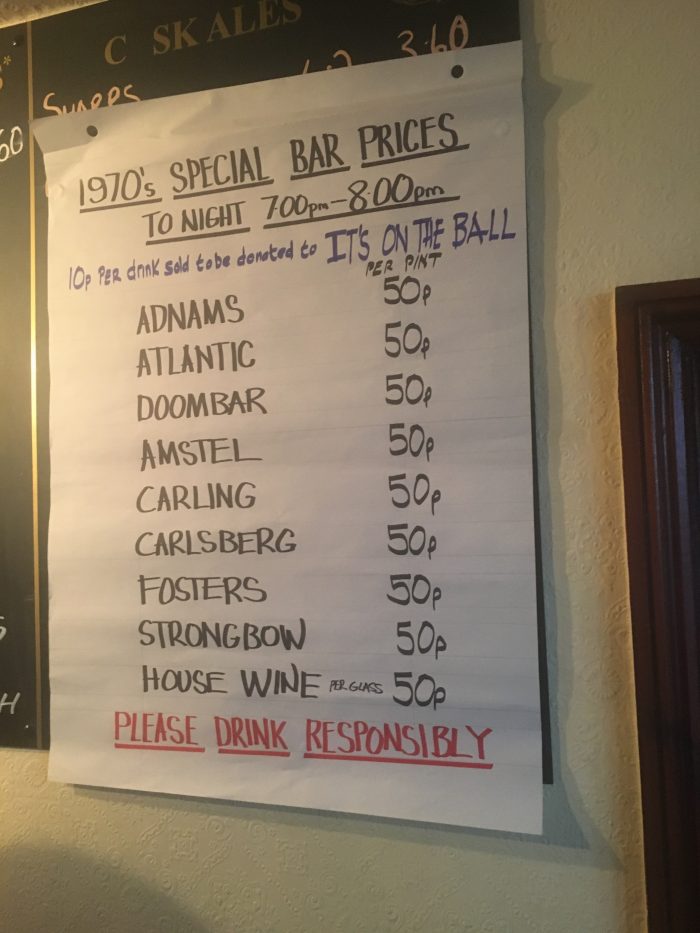 C SK ALES
3.60
60
1970's SPECIAL BAR PRICES
TO NIGHT 7:00pm-8:00pm
10p PER drink sold to be donated to IT'S ON THE BALL
PER PINT
ADNAMS 50p
ATLANTIC 50p
DOOMBAR 50p
AMSTEL 50p
CARLING 50p
CARLSBERG 50p
FOSTERS 50p
STRONGBOW 50p
HOUSE WINE PER GLASS 50p
PLEASE DRINK RESPONSIBLY
H